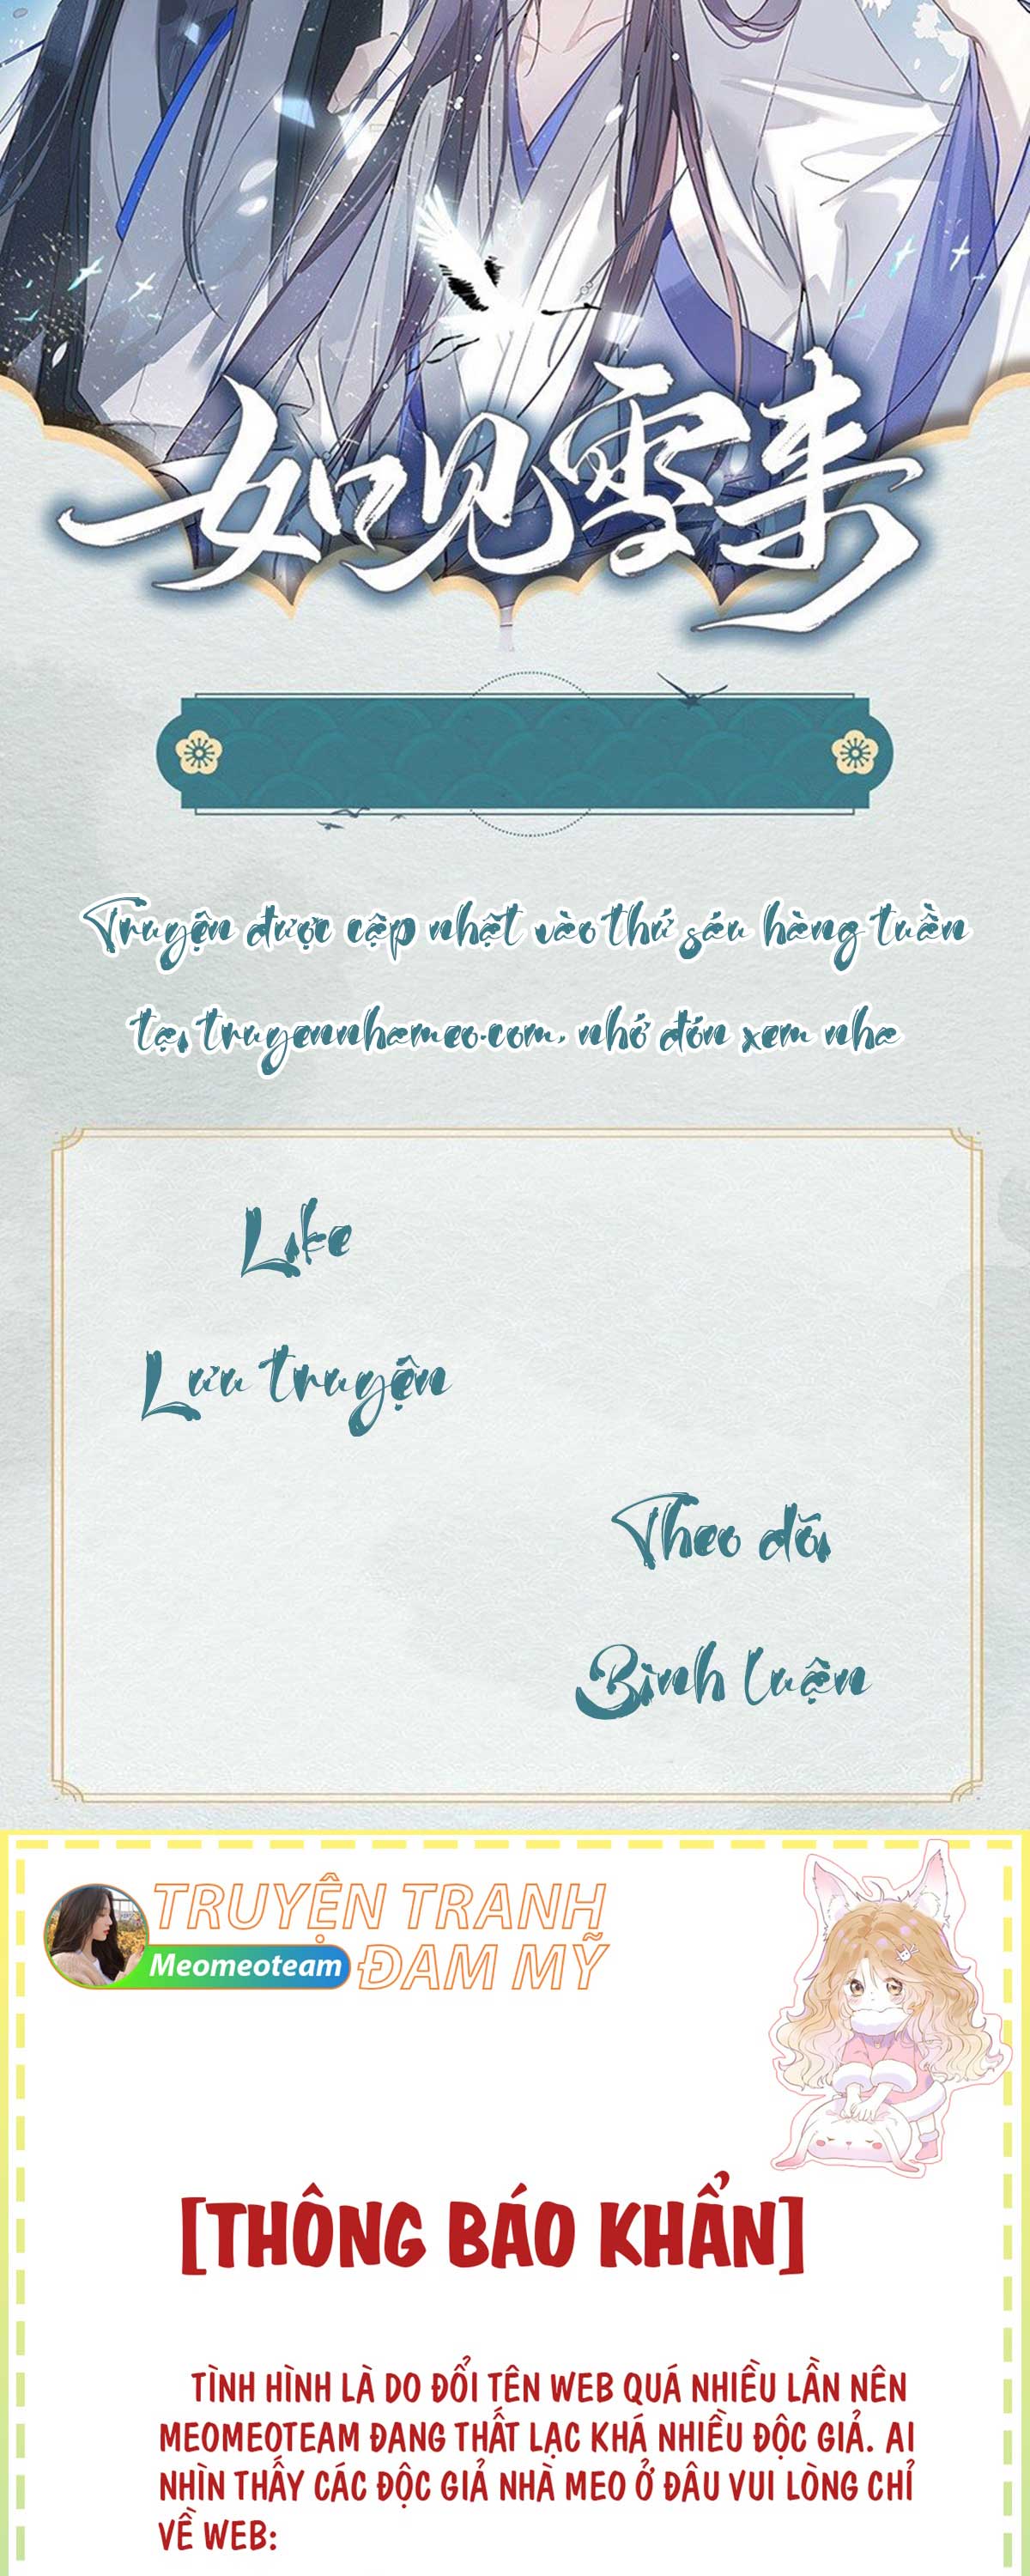 如见雪来
Truyện được cập nhật vào thứ sáu hàng tuần
tại truyennhameo.com, nhớ đón xem nha
Like
Lưu truyện
Theo dõi
Bình luận
TRUYỆN TRANH
Meomeoteam ĐAM MỸ
[THÔNG BÁO KHẨN]
TÌNH HÌNH LÀ DO ĐỔI TÊN WEB QUÁ NHIỀU LẦN NÊN
MEOMEOTEAM ĐANG THẤT LẠC KHÁ NHIỀU ĐỘC GIẢ. AI
NHÌN THẤY CÁC ĐỘC GIẢ NHÀ MEO Ở ĐÂU VUI LÒNG CHỈ
VỀ WEB: